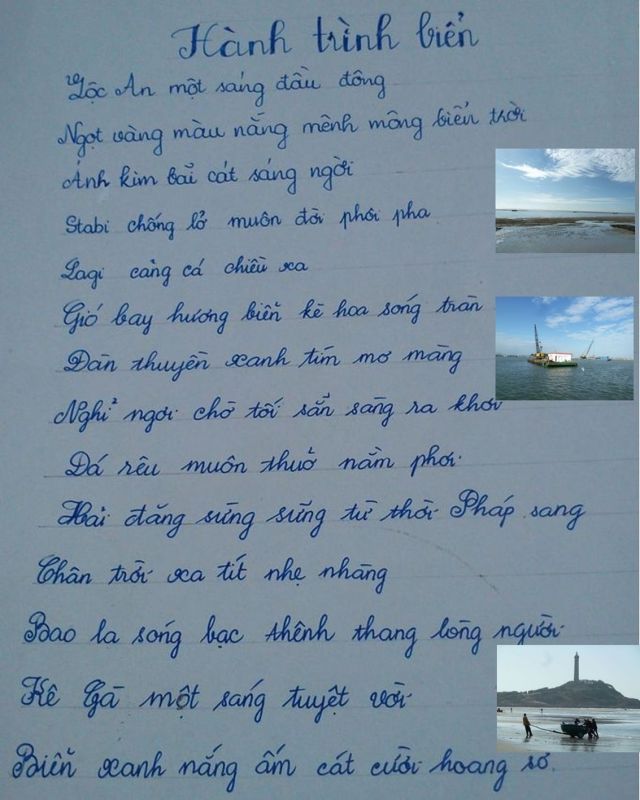 Hành trình biển
Lộc An một sáng đầu đông
Ngọt vàng màu nắng mênh mông biển trời
Ánh kim bãi cát sáng ngời
Stabi chống lở muôn đời phôi pha
Lagi cảng cá chiều xa
Gió bay hương biển kè hoa sóng tràn
Đàn thuyền xanh tím mơ màng
Nghỉ ngơi chờ tối sẵn sàng ra khơi
Đá rêu muôn thuở nằm phơi
Hải đăng sừng sững từ thời Pháp sang
Chân trời xa tít nhẹ nhàng
Bao la sóng bạc thênh thang lòng người
Kê Gà một sáng tuyệt vời
Biển xanh nắng ấm cát cười hoang sơ.